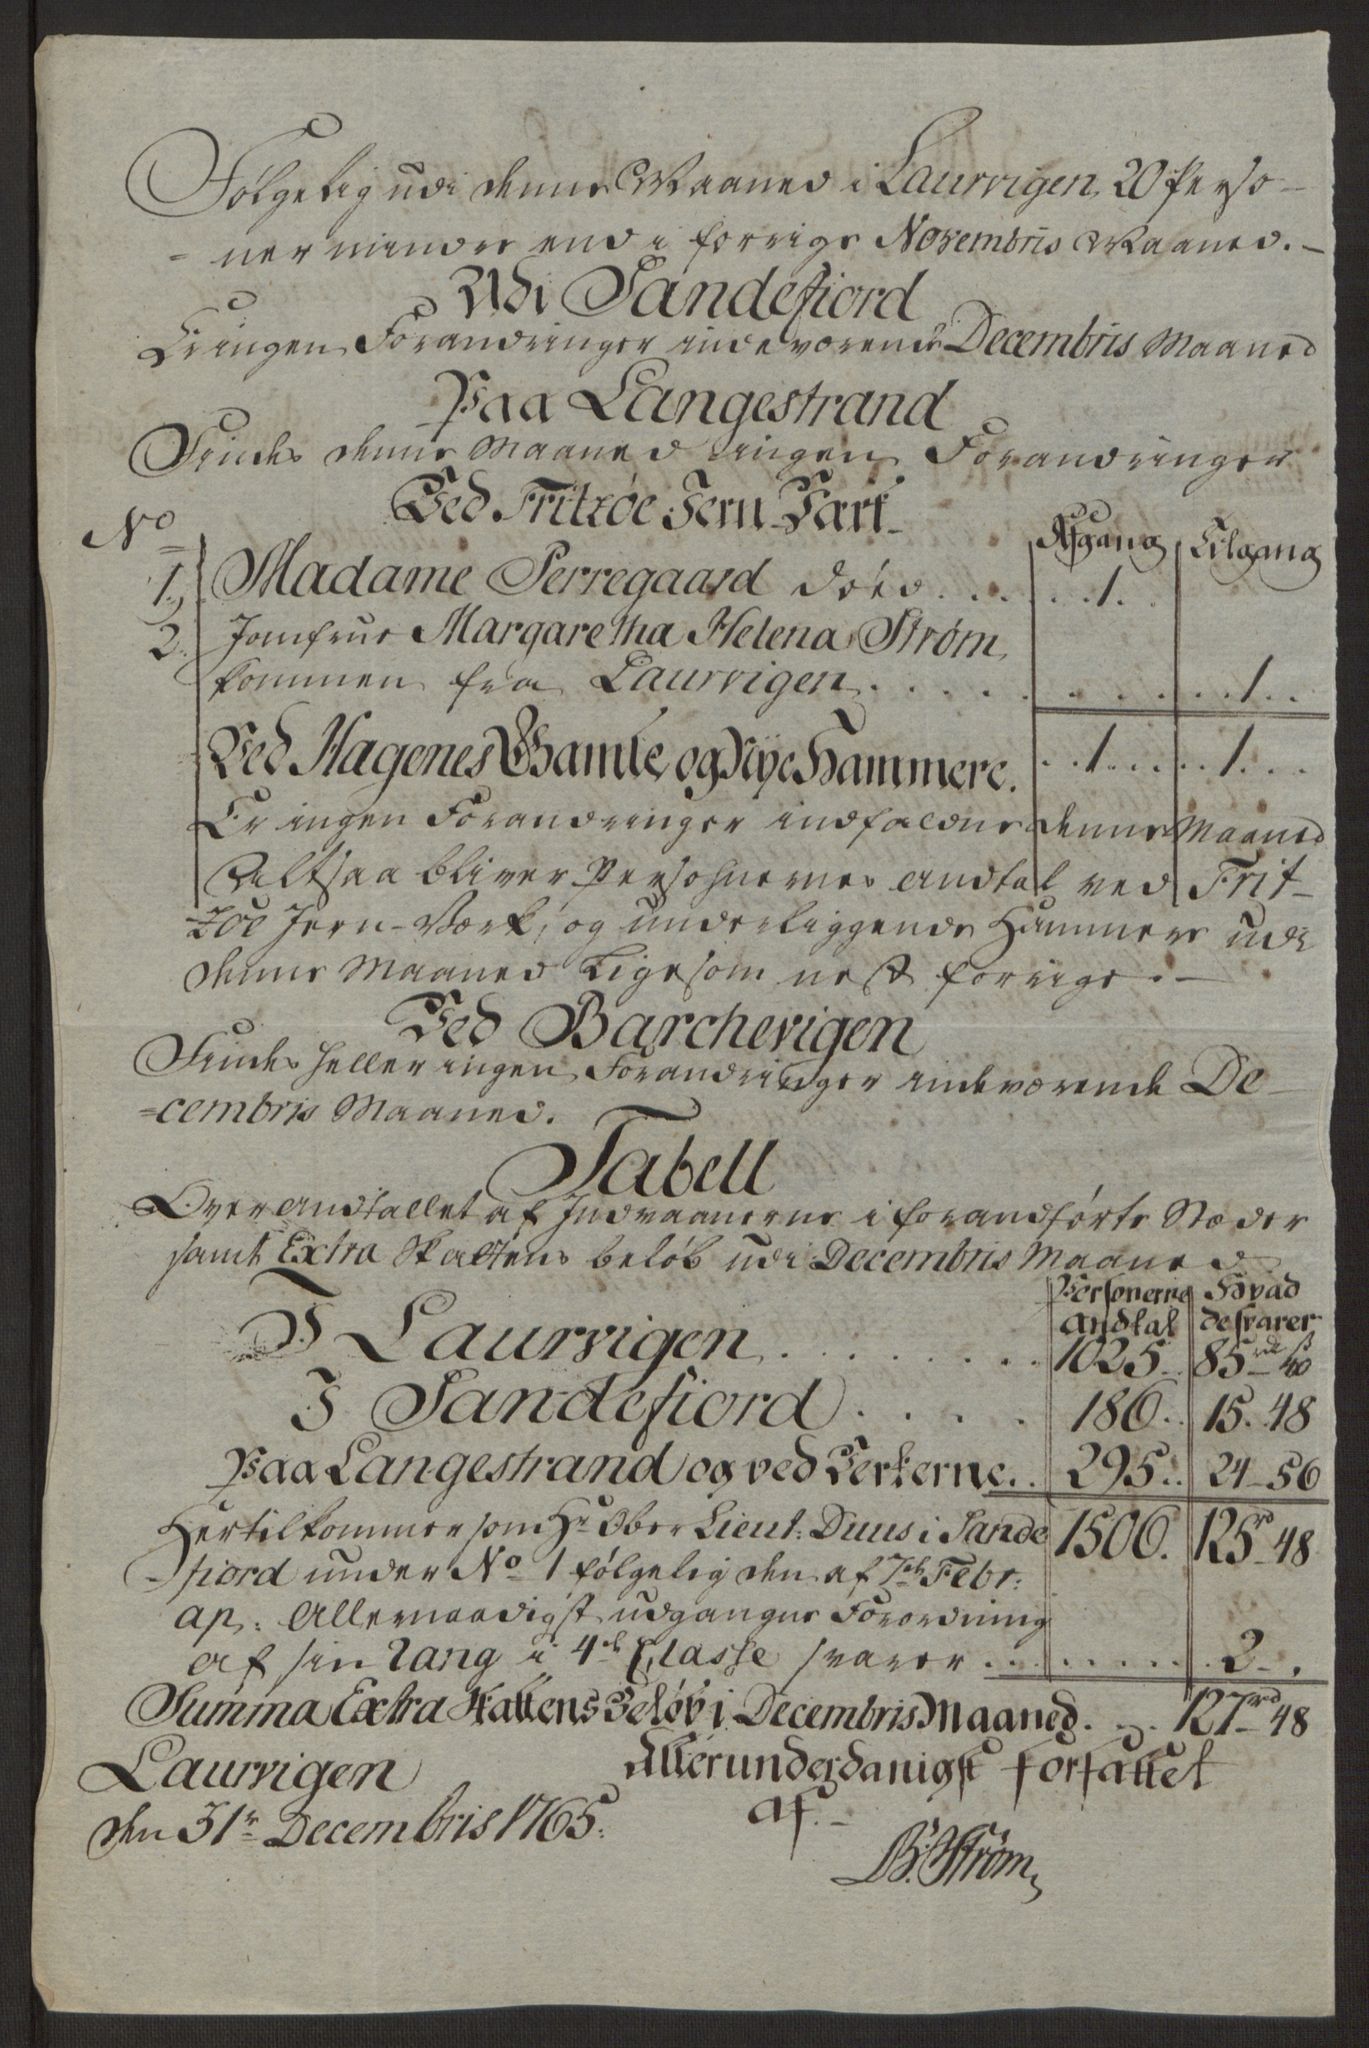 Følgelig udi denne Maaned i Laurvigen, 20 Perso-
-ner mindre end i forrige Novembris Maaned.-
Udi Sandefiord
Er ingen Forandringer indeværende Decembris Maaned
Paa Langestrand
Findes denne Maaned ingen Forandringer
Ved Fritzöe Jern-Værk
No Afgang Tilgang
1, Madame Perregaard död . . . . 1.
2. Jomfrue Margaretha Helena Strøm,
kommen fra Laurvigen . . . . . . . . . 1 . .
Ved Hagenes Gamle, og Nye Hammere. . . 1 . . . . 1 . . .
Er ingen Forandringer indfaldne denne Maaned
Altsaa bliver Persohnernes Andtal ved Frit-
zöe Jern-Værk, og underliggende Hammere udi
denne Maaned ligesom nest forrige. -
Ved Barchevigen
Findes heller ingen Forandringer indeværende De-
=cembris Maaned.
Tabell
Over Andtallet af Indvaanerne i forandførte Stæder
samt Extra Skattens beløb udi Decembris Maaned
Personernes Hvad
Andtal de svarer
I Laurvigen . . . . . . . . 1025. 85 rd 40 s
I Sandefiord . . . . . 186. . 15. 48
Paa Langestrand og ved Verkerne. . 295. . 24 - 56
1506. 125 rd 48
Hertil kommer som Hr Ober Lieut: Duus i Sande
-fiord under No 1 følgelig den af 7de Febr:
ap: Allernaadigst udgangne Forordning
af sin Rang i 4de Classe svarer . . . . . . . . . 2 - .
Summa Extra Skattens Beløb i Decembris Maaned. . . 127 rd 48
Laurvigen Allerunderdanigst forfattet
den 31te Decembris 1765. af. -
B: Strøm,